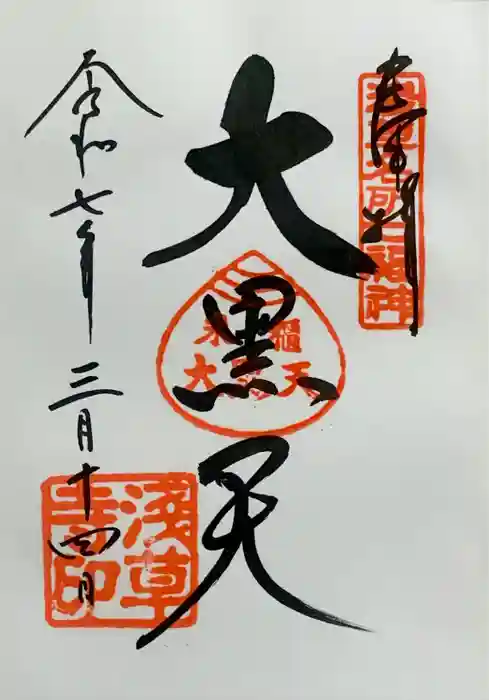 奉拝
浅草名所七福神
大黒天
米櫃
大黒天
令和七年 三月十四日
浅草寺印